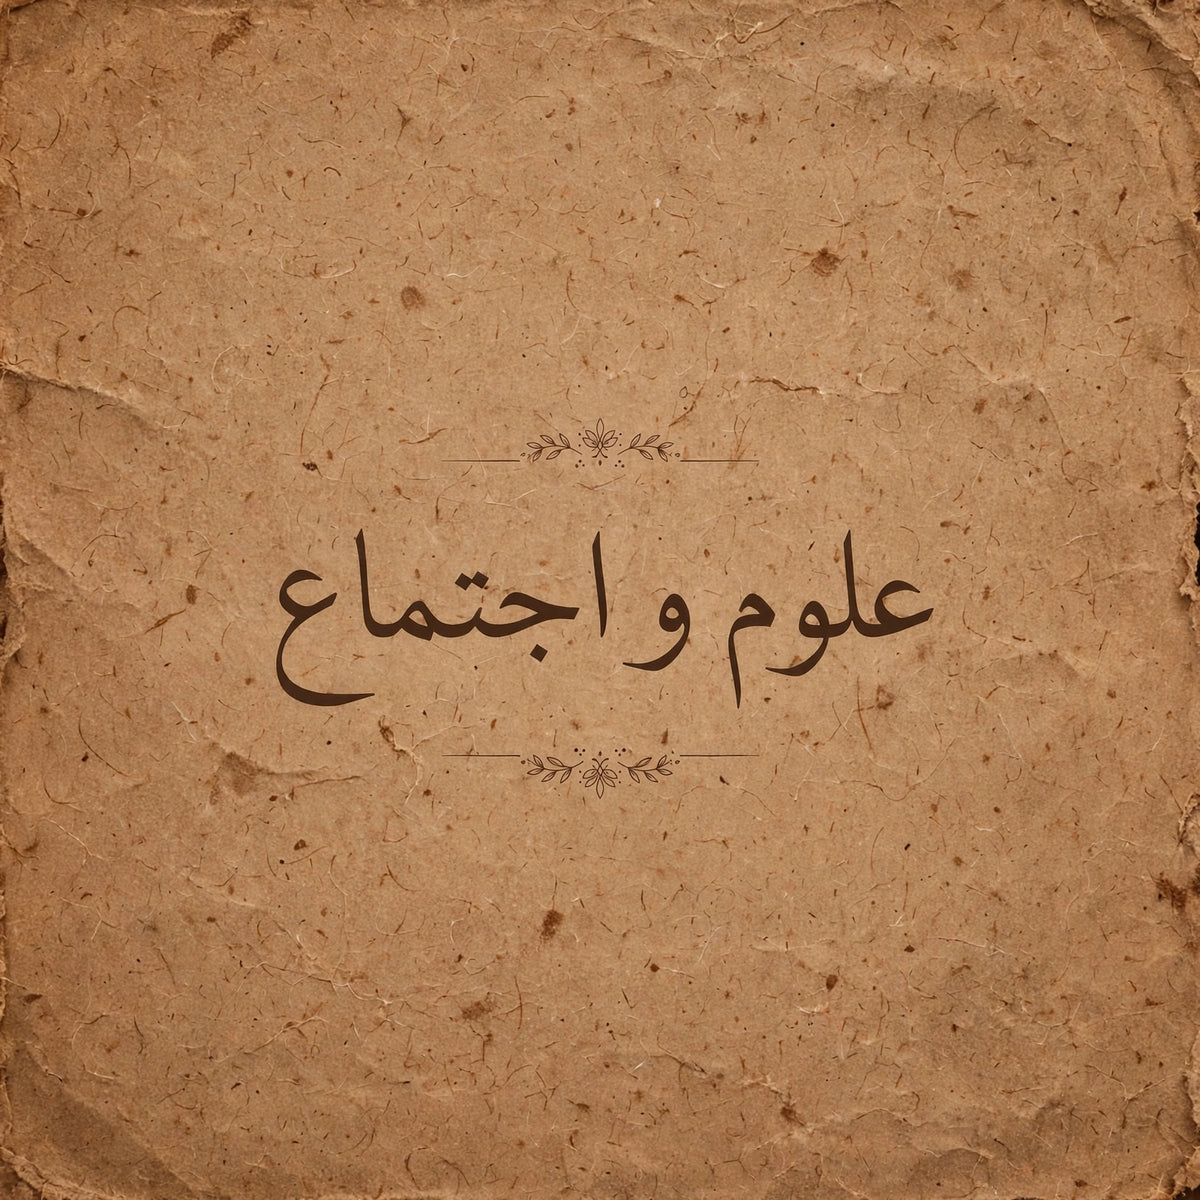 علوم و اجتماع